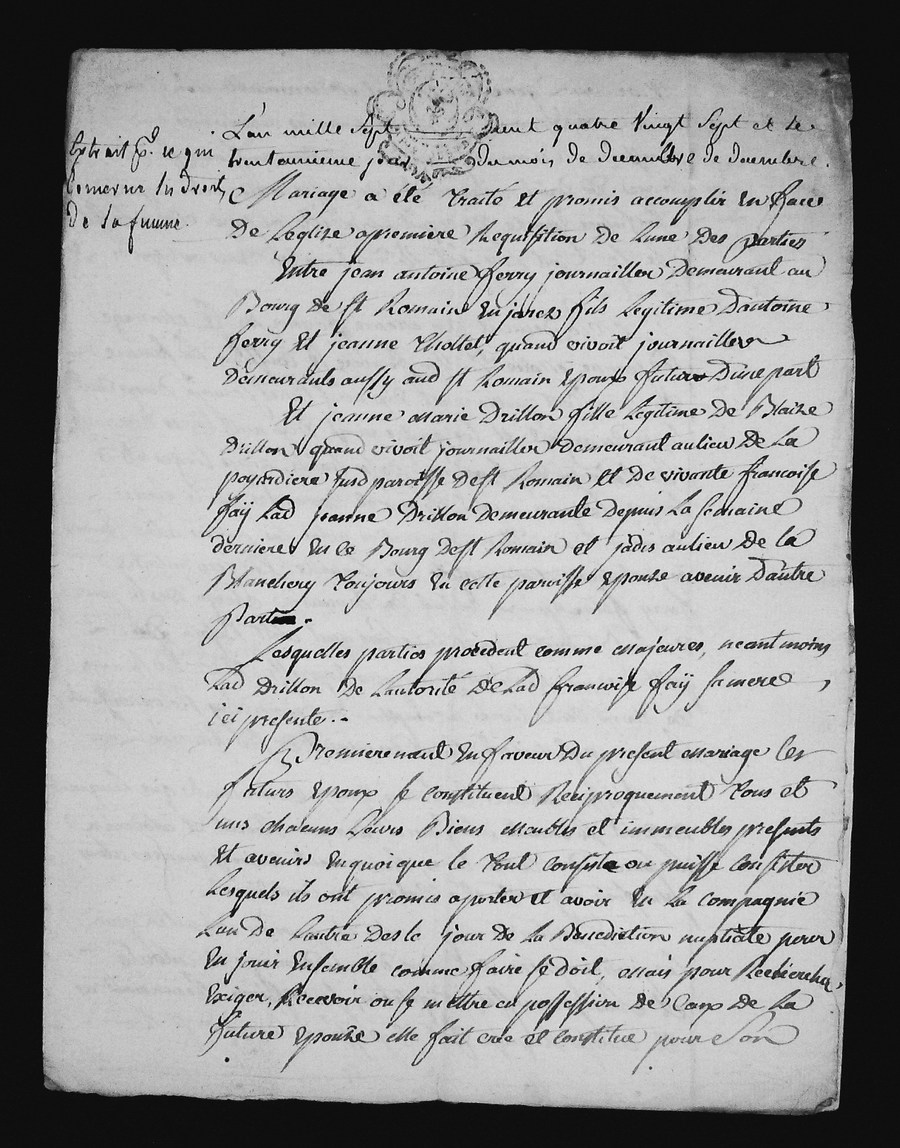 Extrait p.r ce qui
concerne les droits
de la femme.
L'an mille Sept Cent quatre Vingt Sept et le
trentounieme jour du mois de decembre de decembre.
Mariage a été traité et promis accomplir en face
de Leglise a premiere Requisition de Lune des parties
Entre jean antoine ferry journaillier demeurant au
Bourg de st Romain en jarez fils Legitime d'antoine
ferry et jeanne thollet, quand vivoit journaillier
demeurants aussy aud st Romain epoux futur d'une part
Et jeanne Marie Drillon fille Legitime de Blaize
Drillon quand vivoit journaillier demeurant au lieu de la
poyardiere susd paroisse de st Romain et de vivante francoise
faÿ Lad jeanne Drillon demeurante depuis la semaine
derniere en ce Bourg de st Romain et jadis au lieu de la
Blanchery toujours en cette paroisse epouze avenir d'autre
part.
Lesquelles parties procedent comme majeures, neantmoins
Lad Drillon de Lautorité de Lad francoise faÿ sa mere,
ici presente.
Premierement en faveur du present mariage les
futurs epoux se constituent Reciproquement tous et
uns chacuns Leurs Biens meubles et immeubles presents
et avenirs en quoi que le tout consiste ou puisse consister
Lesquels ils ont promis aporter et avoir en la compagnie
Lun de Lautre des le jour de la Benediction nuptiale pour
en jouir ensemble comme faire se doit, mais pour Rechercher,
exiger, Recevoir ou se mettre en possession de ceux de la
future epouze elle fait crée et constitue pour son